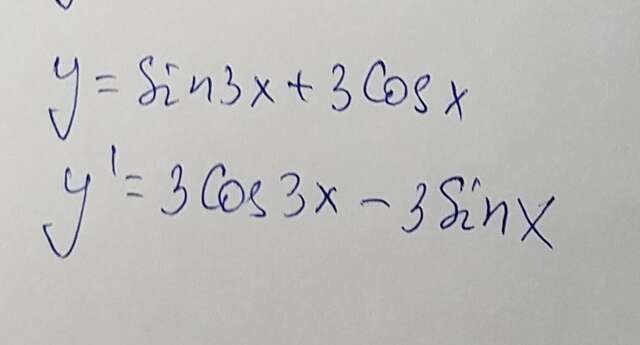 y = Sin3x + 3Cosx
y' = 3Cos3x - 3Sinx